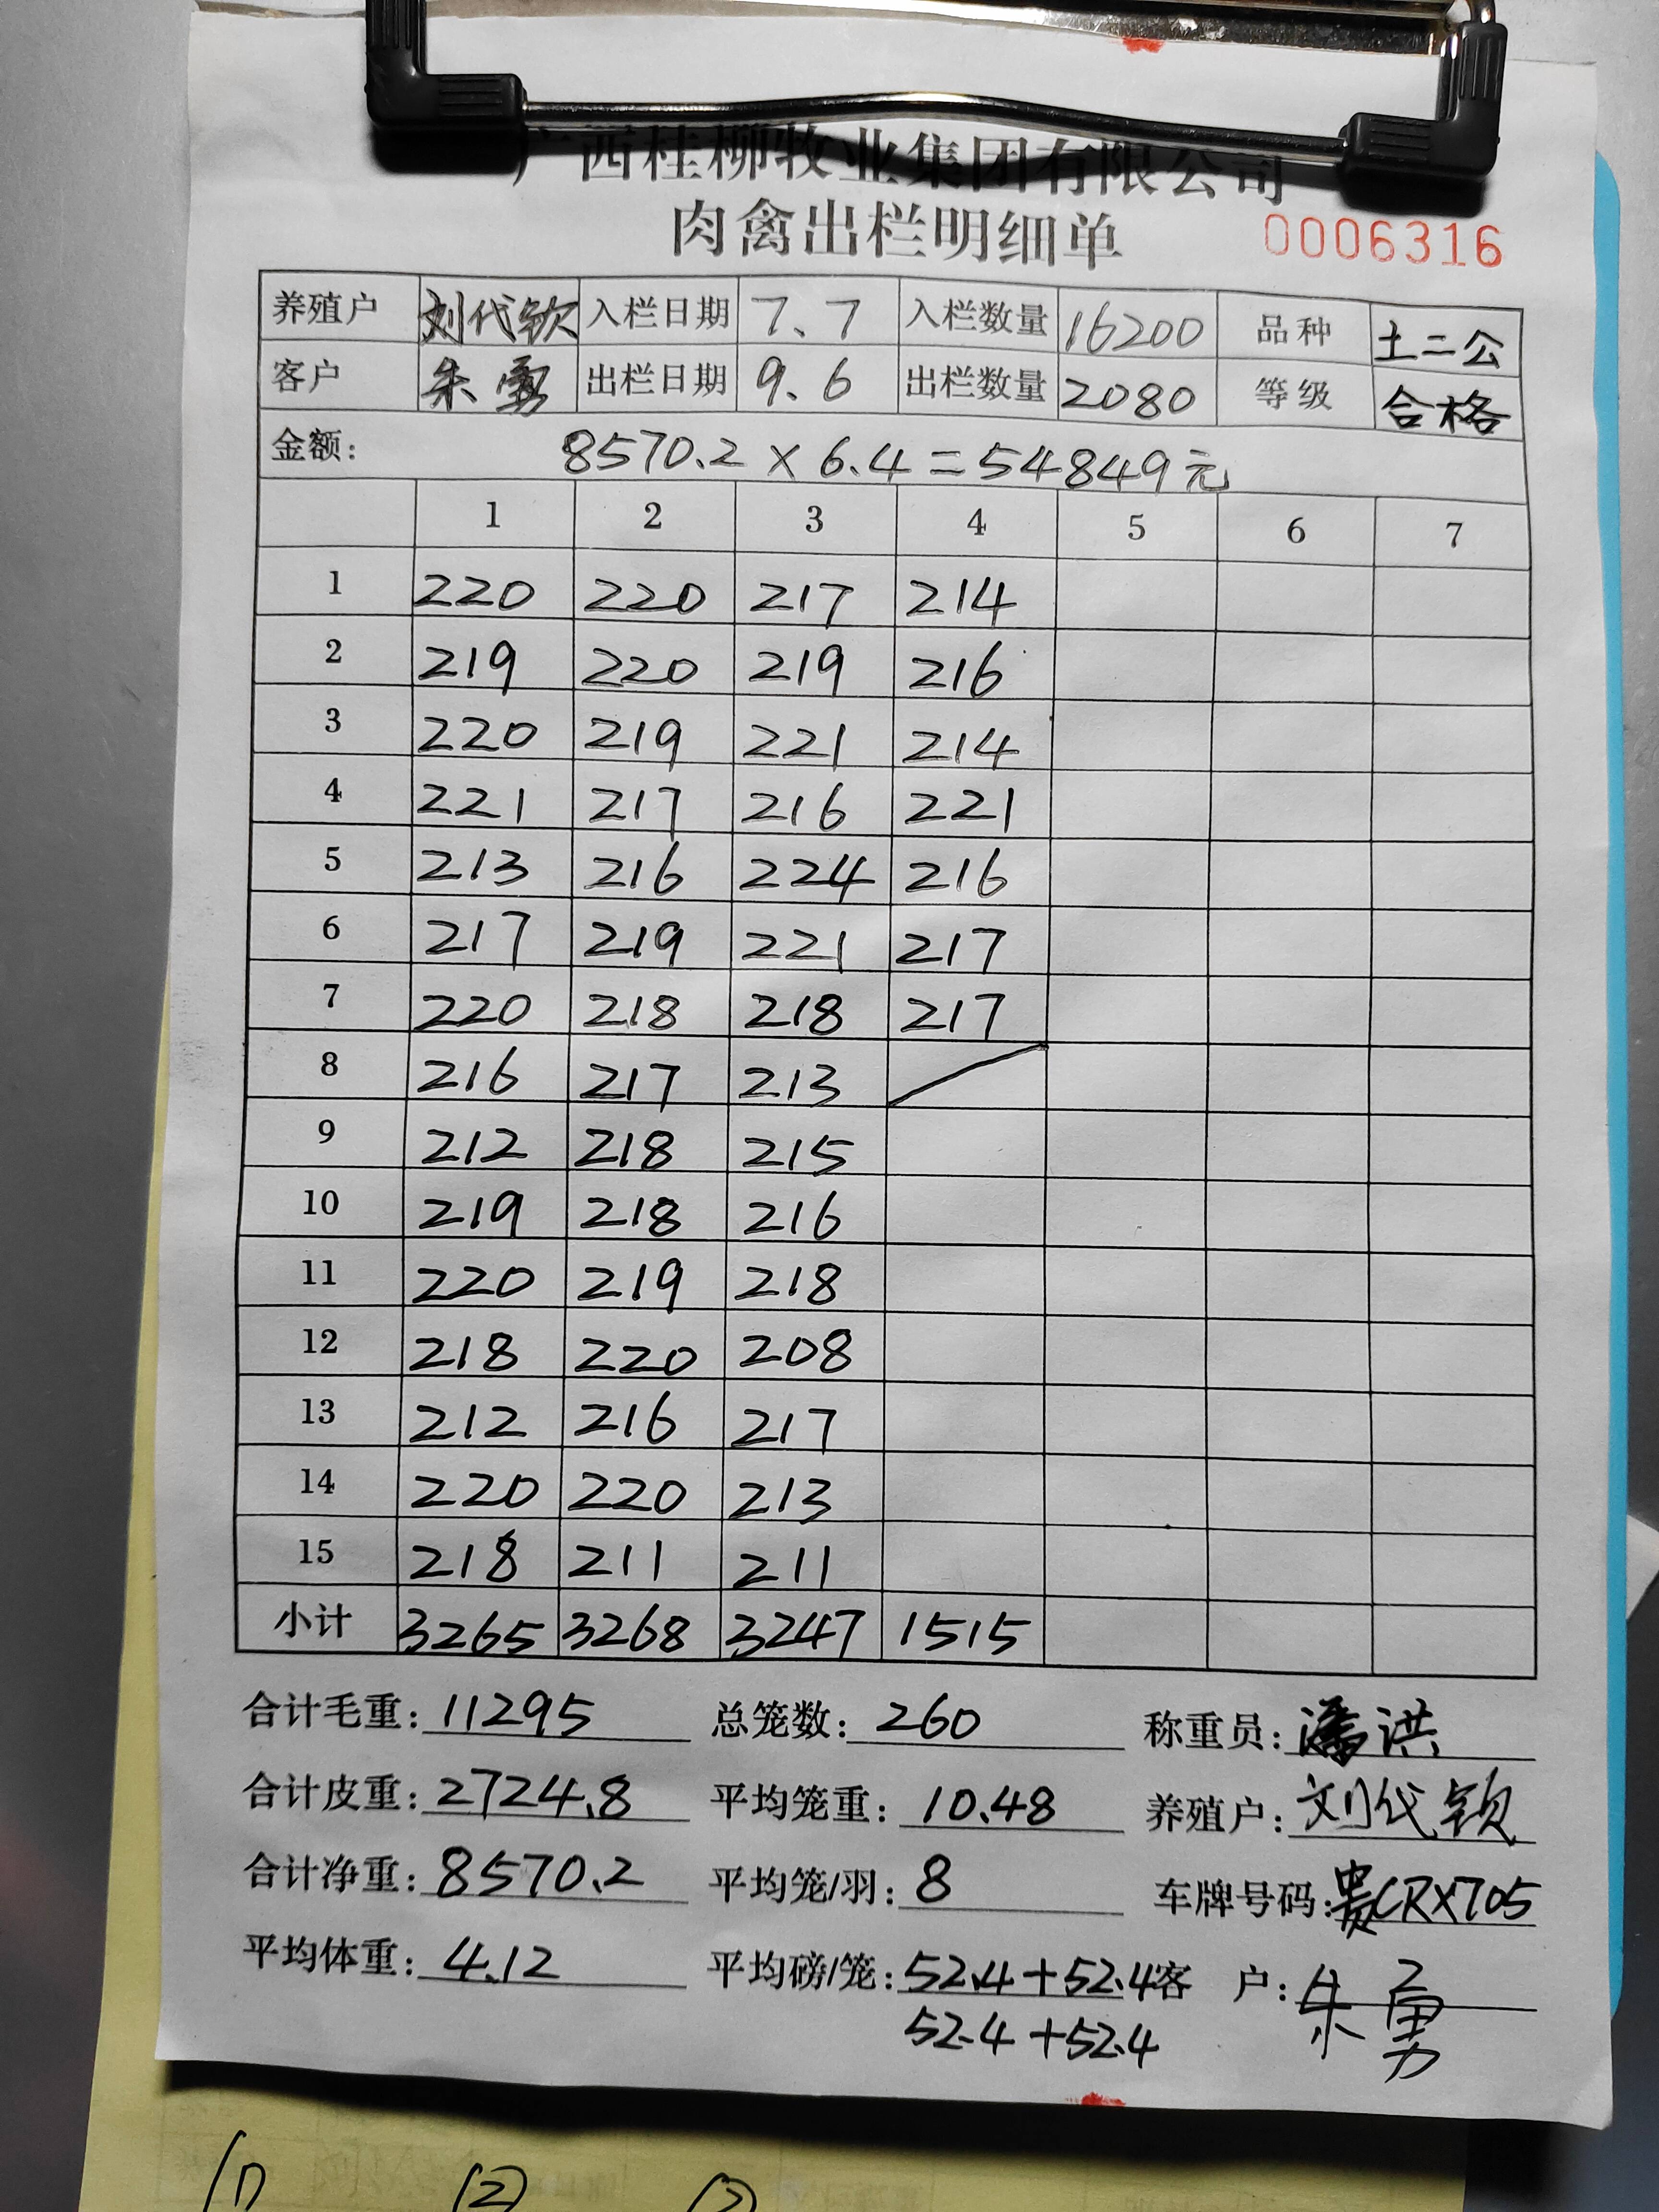 广西桂柳牧业集团有限公司
肉禽出栏明细单 0006316
养殖户 刘代钦 入栏日期 7.7 入栏数量 16200 品种 土二公
客户 朱勇 出栏日期 9.6 出栏数量 2080 等级 合格
金额: 8570.2 × 6.4 = 54849元
1 2 3 4 5 6 7
1 220 220 217 214
2 219 220 219 216
3 220 219 221 214
4 221 217 216 221
5 213 216 224 216
6 217 219 221 217
7 220 218 218 217
8 216 217 213
9 212 218 215
10 219 218 216
11 220 219 218
12 218 220 208
13 212 216 217
14 220 220 213
15 218 211 211
小计 3265 3268 3247 1515
合计毛重: 11295 总笼数: 260 称重员: 潘洪
合计皮重: 2724.8 平均笼重: 10.48 养殖户: 刘代钦
合计净重: 8570.2 平均笼/羽: 8 车牌号码: 贵CRX705
平均体重: 4.12 平均磅/笼: 52.4+52.4 客户: 朱勇
52.4+52.4
(1) (2) (3)